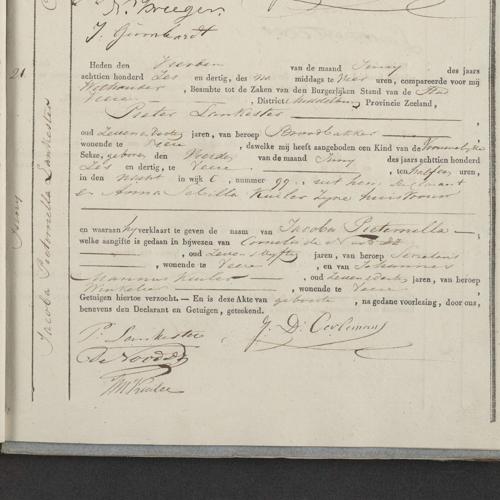 J. Gironhardt
21
Juny
Jacoba Pieternella Lankester
Heden den Vierden van de maand Juny des jaars
achttien honderd Zes en dertig, des Na middags te Vier uren, compareerde voor mij
Wethouder, Beambte tot de Zaken van den Burgerlijken Stand van de Stad
Veere, District Middelburg Provincie Zeeland,
Pieter Lankester
oud Zeven en dertig jaren, van beroep Broodbakker
wonende te Veere, dewelke mij heeft aangeboden een Kind van de Vrouwelijke
Sekse, geboren den Vierden van de maand Juny des jaars achttien honderd
Zes en dertig, te Veere, ten half uren,
in den Nacht in wijk C, nummer 99, uit hem Declarant
en Anna Sibilla Kuiler Zyne huisvrouw
en waaraan hy verklaart te geven de naam van Jacoba Pieternella
welke aangifte is gedaan in bijwezen van Cornelis de
, oud Zeven en Vyftig jaren, van beroep
, wonende te Veere, en van
Kuiler oud Zeven en dertig jaren, van beroep
Winkelier, wonende te Veere
Getuigen hiertoe verzocht. — En is deze Akte van geboorte, na gedane voorlezing, door ons,
benevens den Declarant en Getuigen, geteekend.
P. Lankester